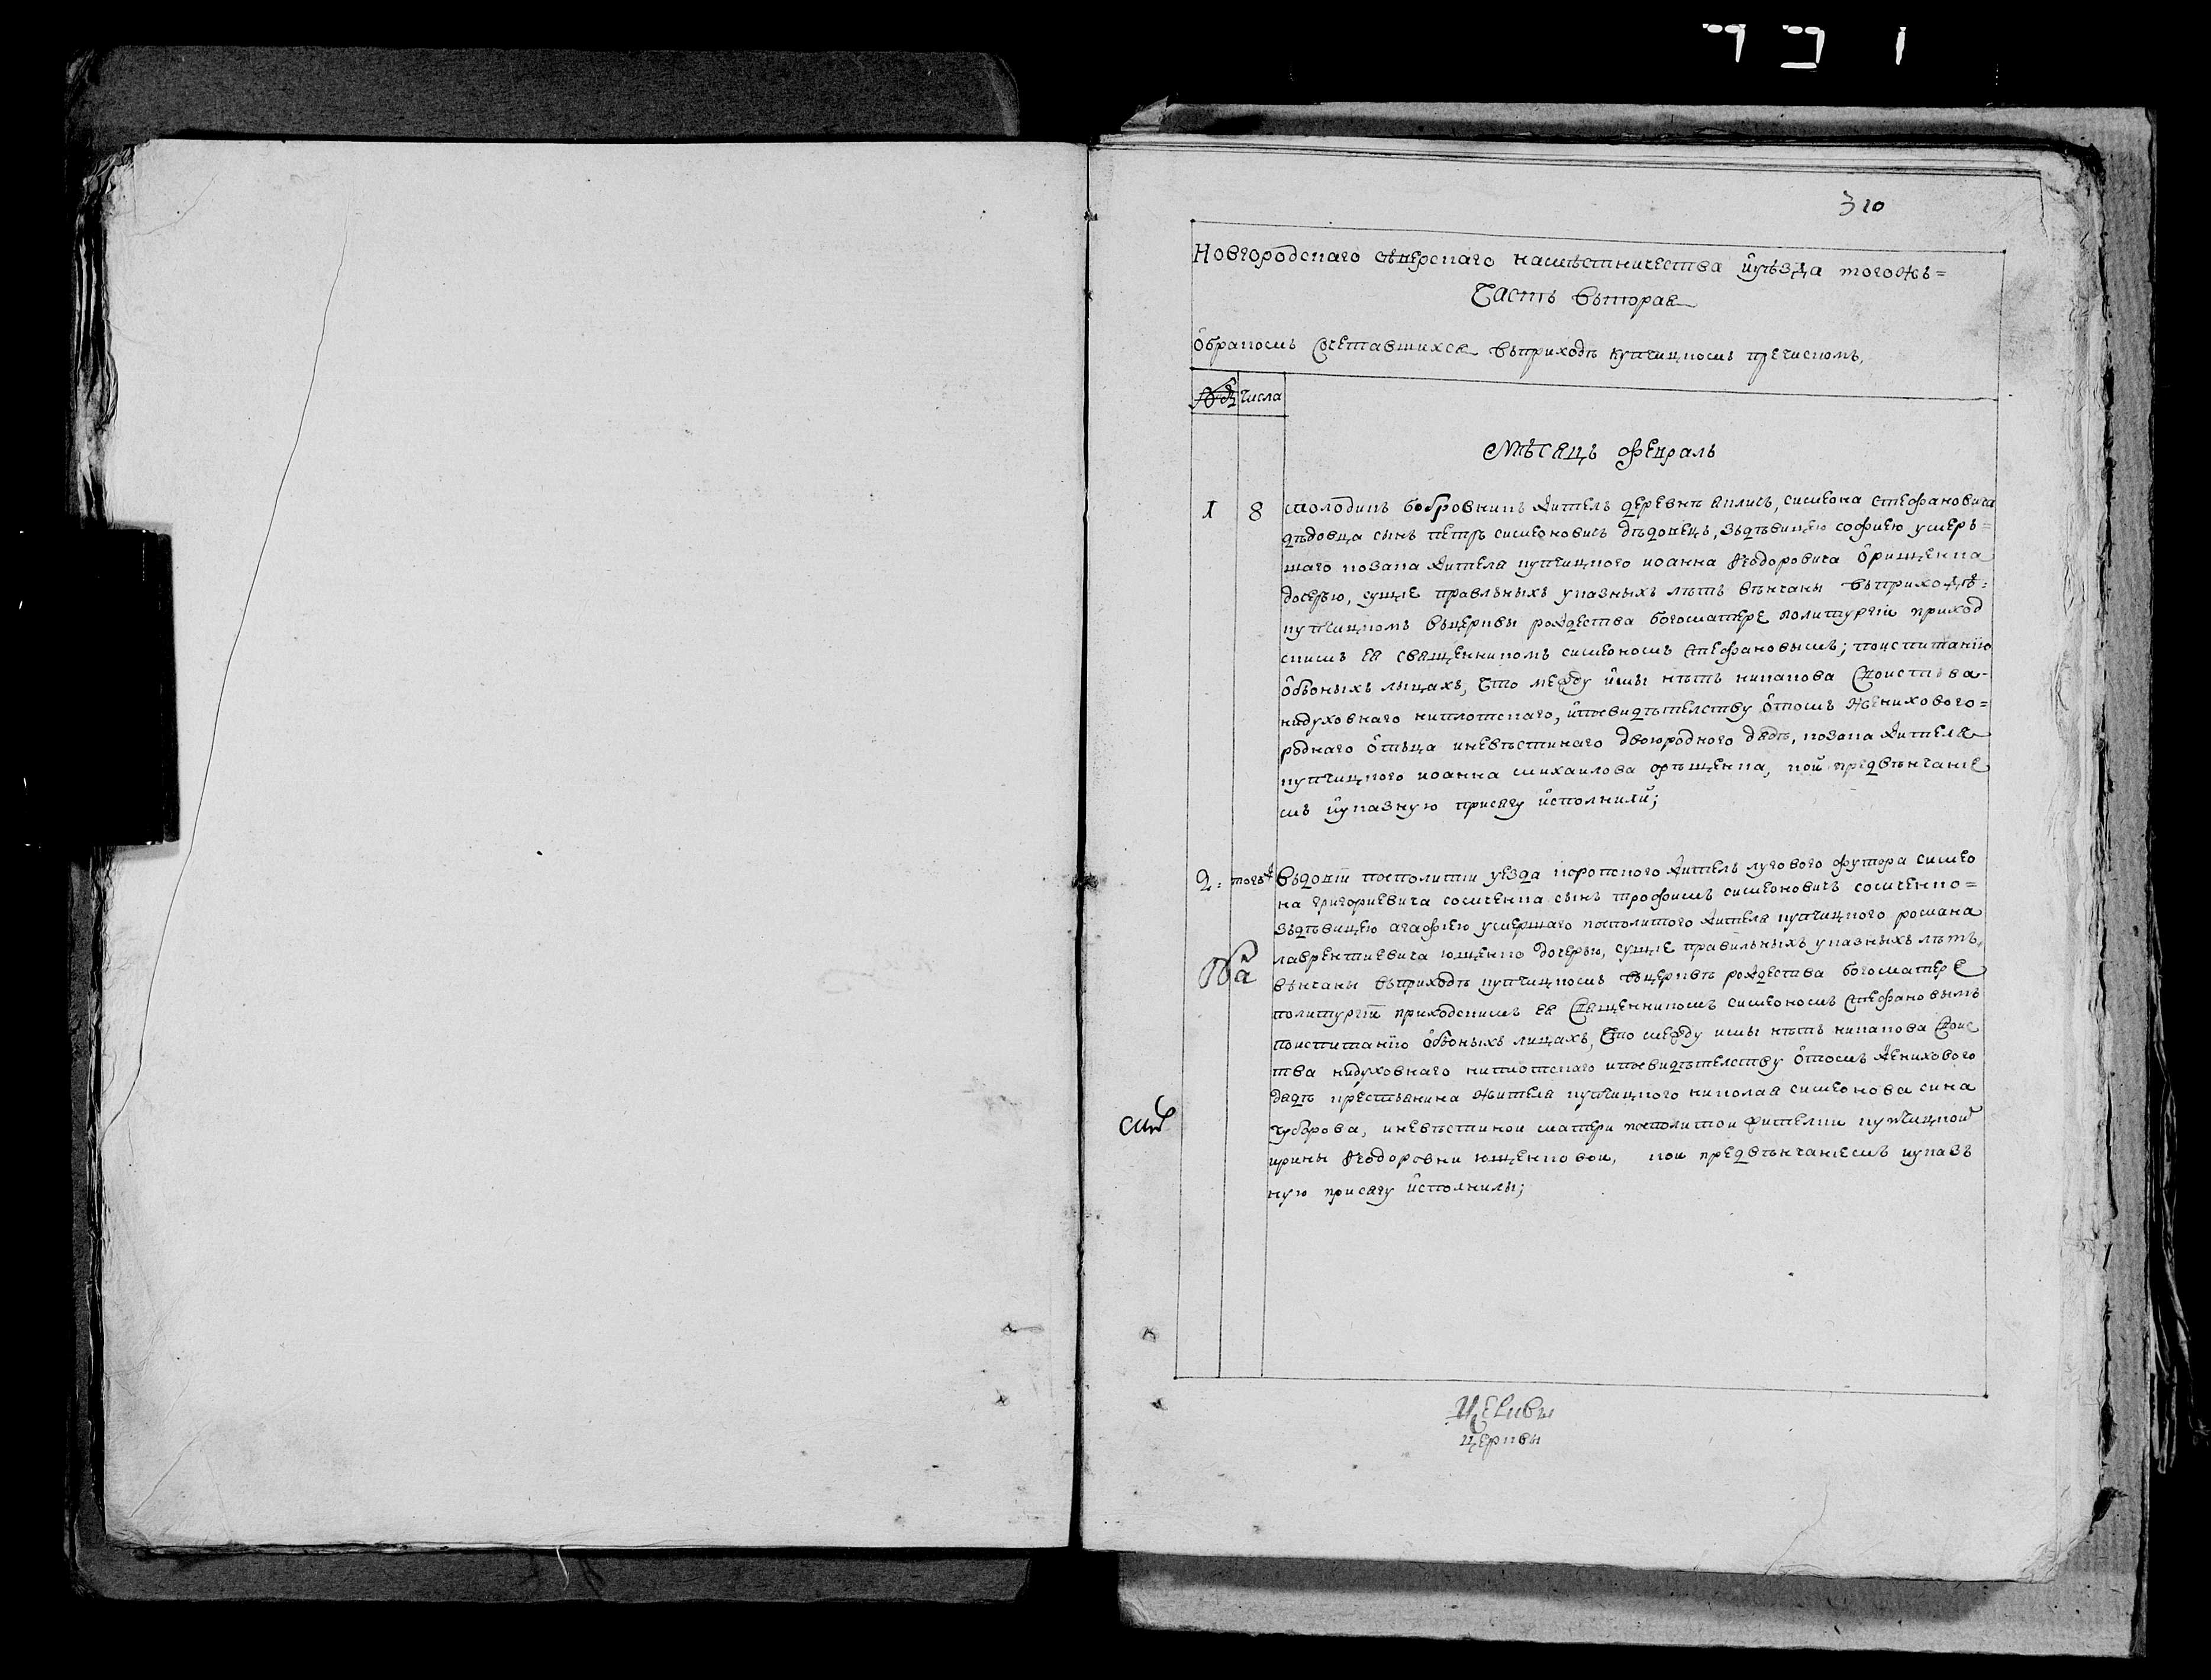 310
Новгородскаго сѣверскаго намѣстничества и уѣзда тогожъ=
Часть вторая
о бракомъ сочетавшихся въ приходѣ купчицкомъ пречиском,
№ числа
Мѣсяць февраль
1 8 молодикъ бобровникъ житель деревнѣ симеона стефановича
дѣдовца сынъ петръ симеоновичъ дѣдовецъ, зъ дѣвицею софиею умеръ=
шаго козака жителя купчицкого иоанна Ѳеодоровича орищенка
дочерью, сущие правлныхъ указныхъ лѣтъ вѣнчаны въ приходѣ:
купчицкомъ в церкви рождества богоматере по литургіи приход
скимъ ея священникомъ симеономъ стефановымъ; по испитанію
о бъоныхъ лыцахъ, что между имы нѣтъ никакова своиства-
ни духовнаго ни плотскаго, и по свидѣтелству о томъ женихового=
родного отъца и невѣстинаго двоюродного дядѣ, козака жителя
купчицкого иоанна михаилова орѣщенка, кои предвѣнчание
мъ и указную присягу исполнили;
2: тогожъ вдовій посполитий уезда коропского житель лугового футора симео
на григориевича сосиченка сынъ трофимъ симеоновичъ сосиченко=
зъ дѣвицею агафиею умершаго посполитого жителя купчицкого романа
лаврентиевича ющенко дочерью, сущие правильныхъ указныхъ лѣтъ,
вѣнчаны въ приходѣ купчицкомъ въ церквѣ рождества богоматере
по литургіи приходскимъ ея священникомъ симеономъ стефановымъ
по испитанію о бъоныхъ лицахъ, что между имы нѣтъ никакова своис
тва ни духовнаго ни плотскаго и по свидѣтелству о томъ женихового
дядѣ крестьянина жителя купчицкого николая симеонова сина
чубарова, и невѣстиной матери посполитой жителки купчицкой
ирины Ѳеодоровни ющенковой, кои предвѣнчаниемъ и указъ
ную присягу исполнилы;
церквы
церквы